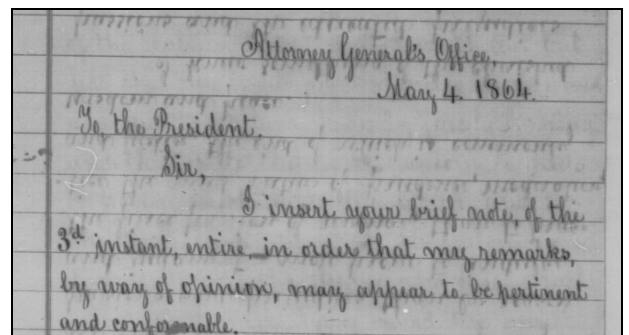 Attorney General's Office,
May 4. 1864.
To, the President.
Sir,
I insert your brief note, of the
3d instant, entire, in order that my remarks,
by way of opinion, may appear to be pertinent
and conformable.